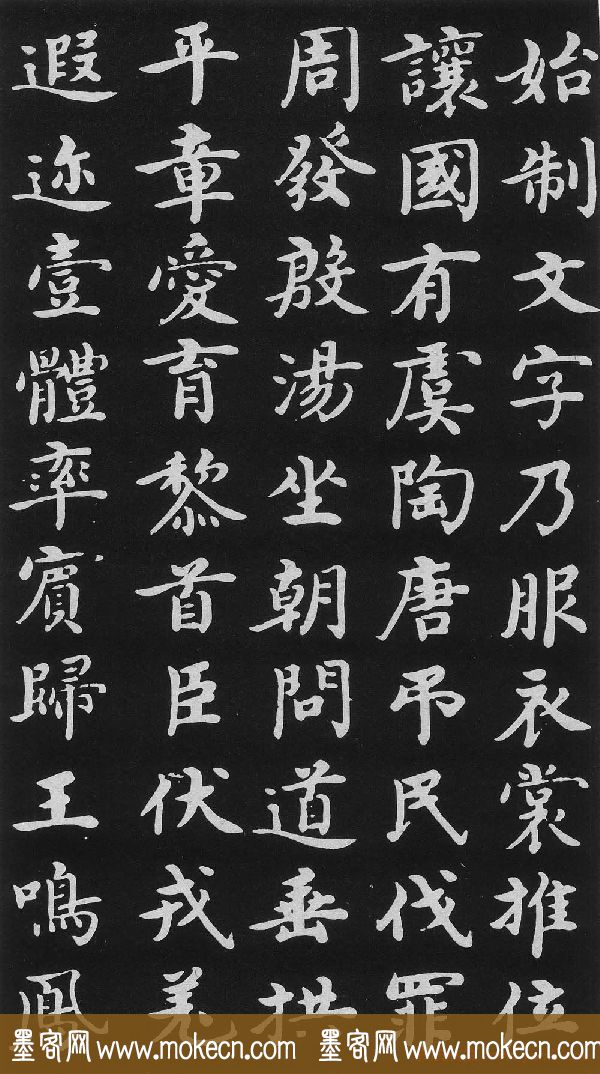 始制文字乃服衣裳推位
讓國有虞陶唐弔民伐罪
周發殷湯坐朝問道垂拱
平章愛育黎首臣伏戎羌
遐迩壹體率賓歸王鳴鳳
墨客网 www.mokecn.com 墨客网 www.mokecn.com